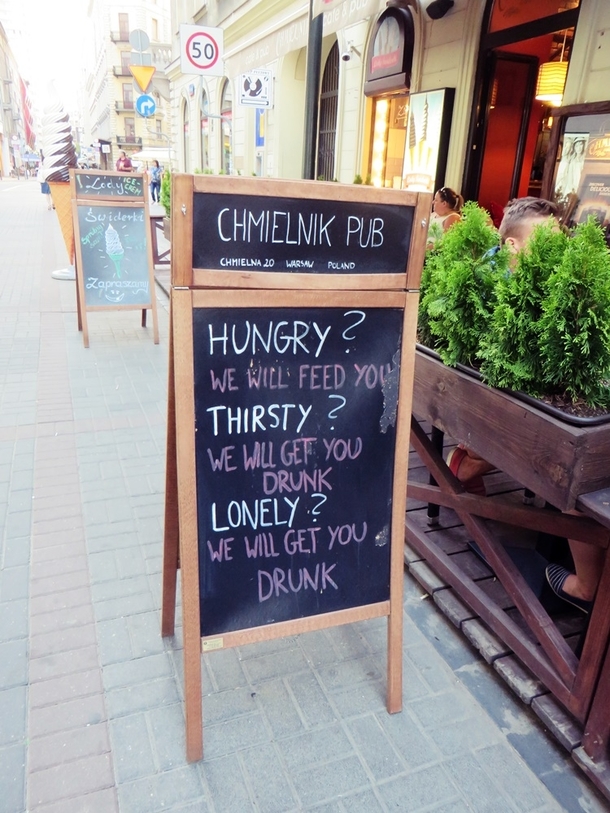 50
CHMIELNIK PUB
CHMIELNA 20 WARSAW POLAND
HUNGRY?
WE WILL FEED YOU
THIRSTY?
WE WILL GET YOU
DRUNK
LONELY?
WE WILL GET YOU
DRUNK
Lody
ICE
CREAM
Świderki
Zapraszamy